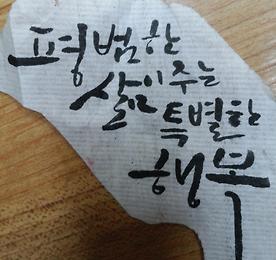 평범한
삶이 주는
특별한
행복